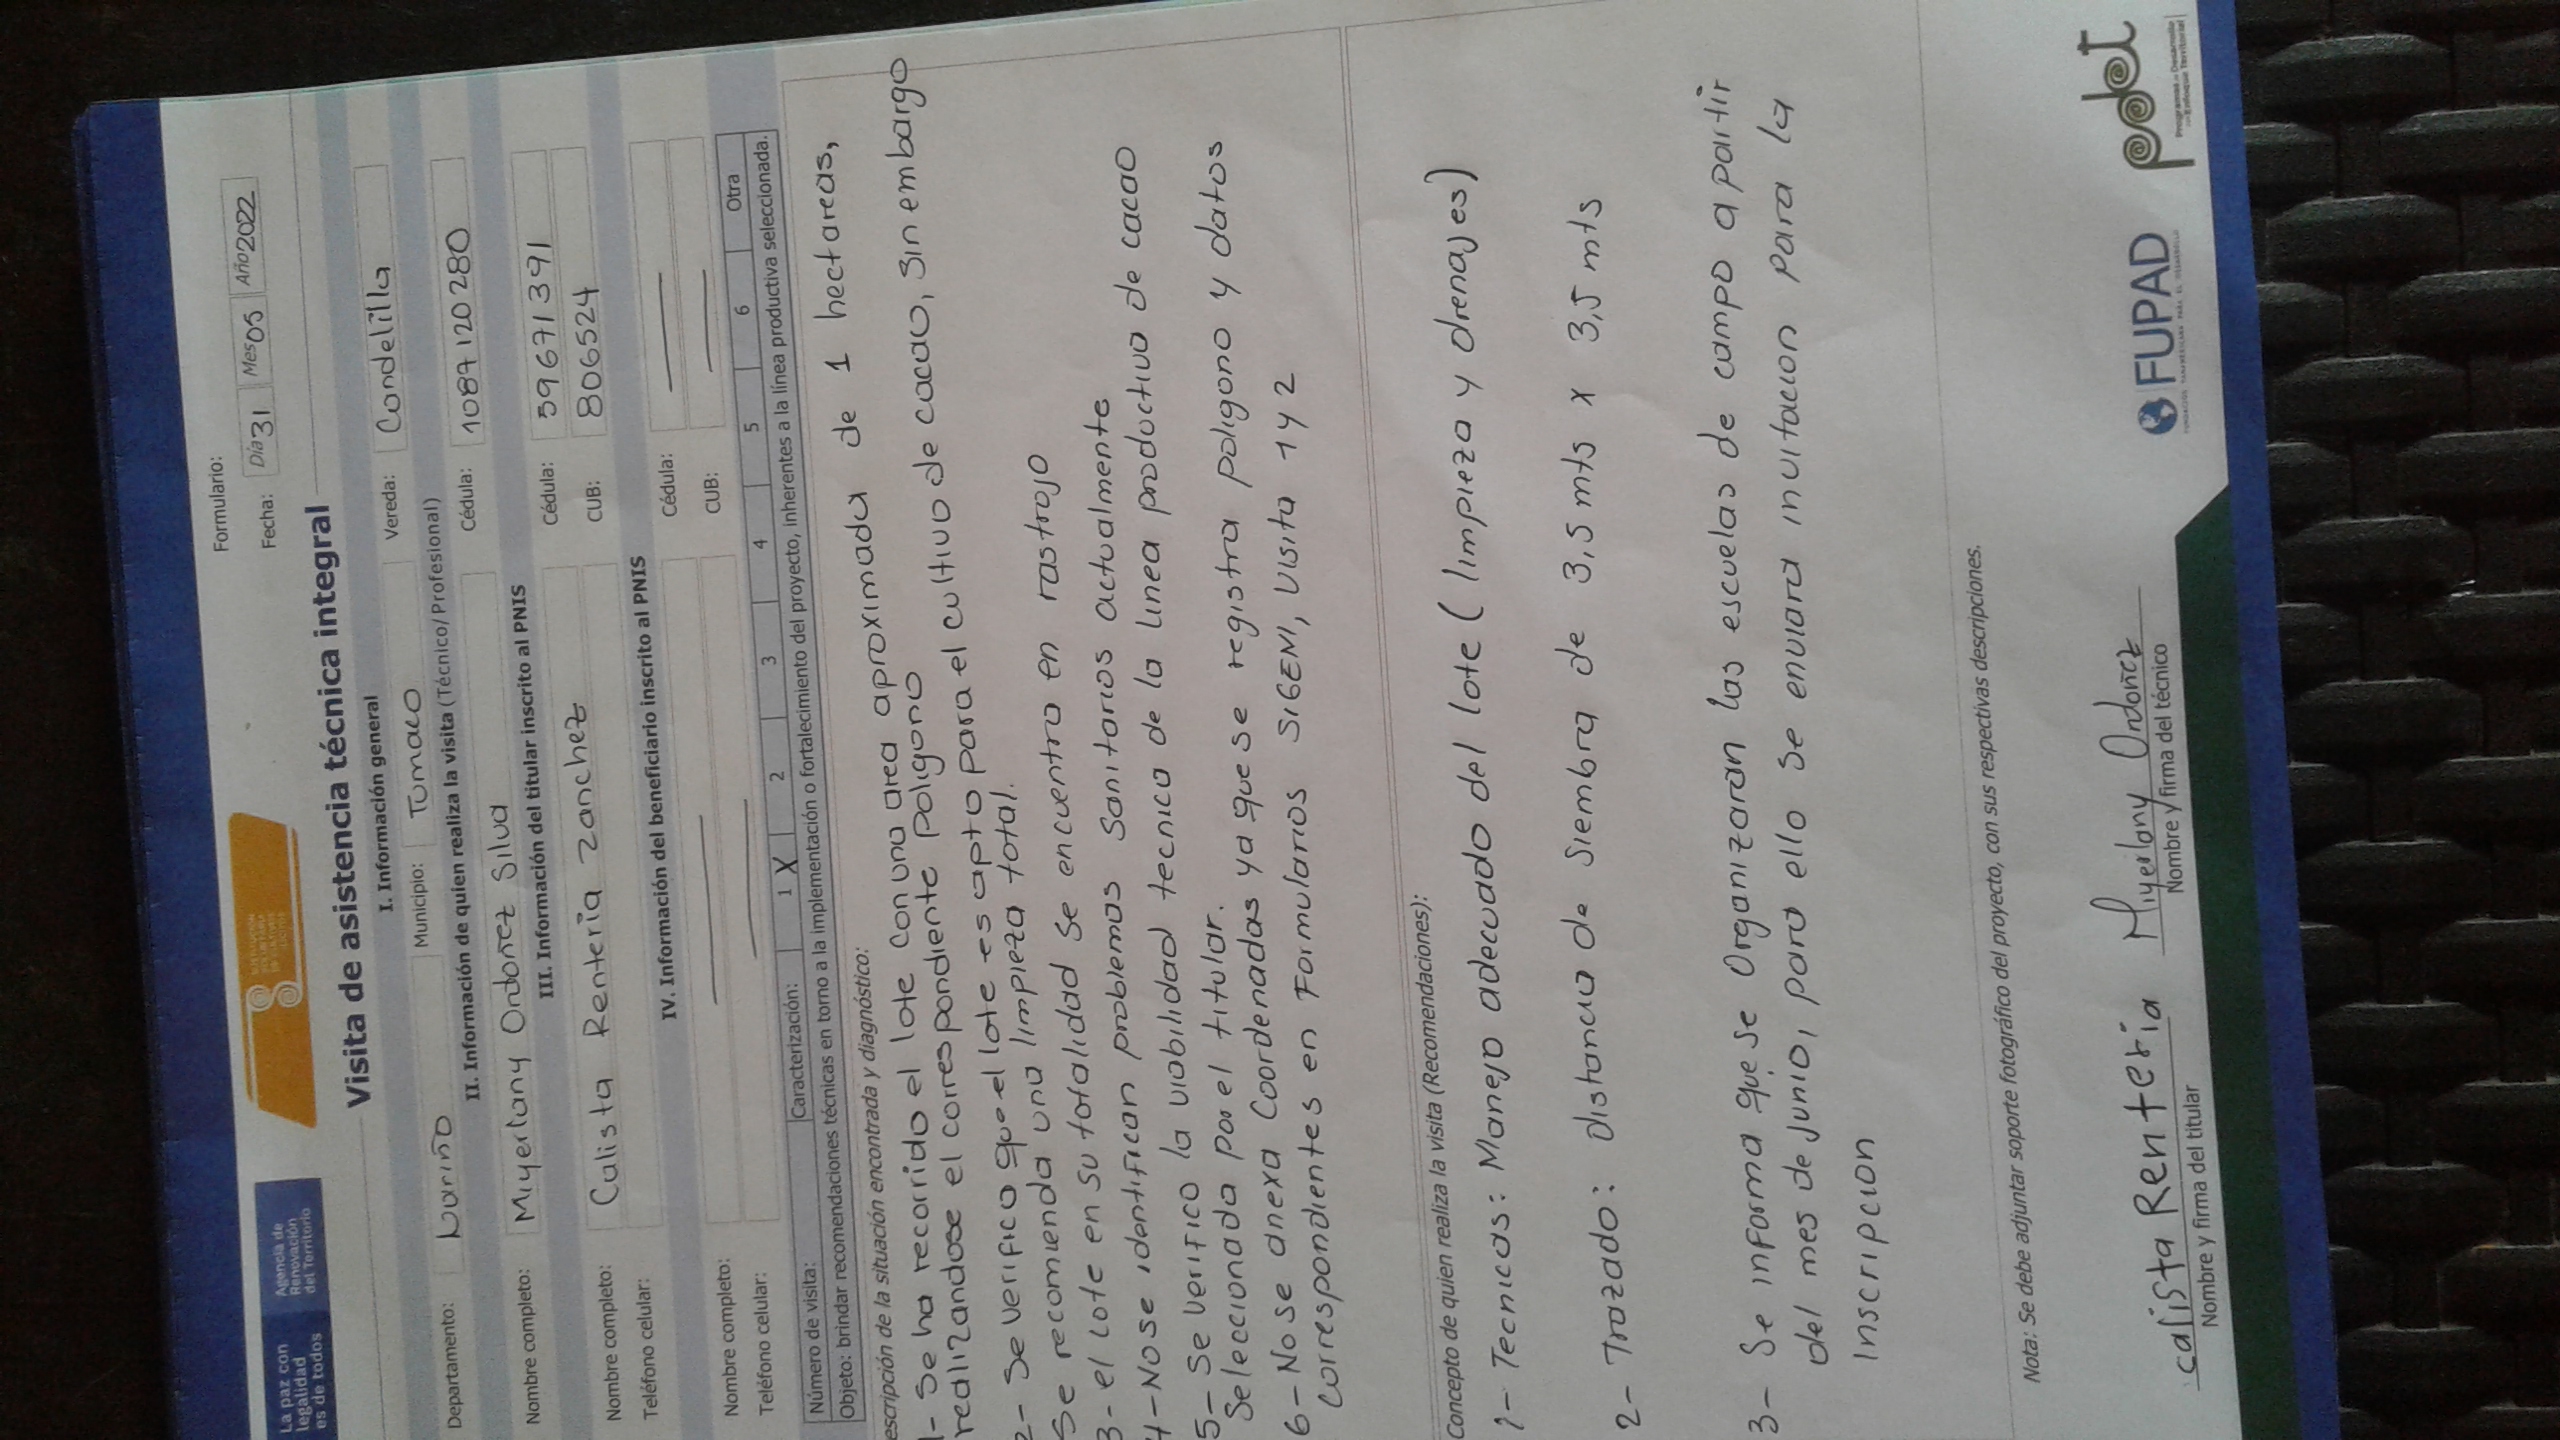 La paz con
legalidad
es de todos
Agencia de
Renovación
del Territorio
Formulario:
Fecha: Día 31 Mes 05 Año 2022
Visita de asistencia técnica integral
I. Información general
Departamento: Nariño Municipio: Tumaco Vereda: Candelilla
II. Información de quien realiza la visita (Técnico/Profesional)
Nombre completo: Miyerlany Ordoñez Silva Cédula: 1087120280
III. Información del titular inscrito al PNIS
Nombre completo: Calista Renteria Zanchez Cédula: 59671391
Teléfono celular: CUB: 806524
IV. Información del beneficiario inscrito al PNIS
Nombre completo: Cédula:
Teléfono celular: CUB:
Número de visita: Caracterización: 1 X 2 3 4 5 6 Otra
Objeto: brindar recomendaciones técnicas en torno a la implementación o fortalecimiento del proyecto, inherentes a la línea productiva seleccionada.
escripción de la situación encontrada y diagnóstico:
1- Se ha recorrido el lote con una area aproximada de 1 hectareas,
realizandose el correspondiente poligono
2- Se verifico que el lote es apto para el cultivo de cacao, sin embargo
Se recomienda una limpieza total.
3- el lote en su totalidad se encuentra en rastrojo
4- No se identifican problemas sanitarios actualmente
5- Se verifico la viabilidad tecnica de la linea productiva de cacao
Seleccionada por el titular.
6- No se anexa Coordenadas ya que se registra poligono y datos
correspondientes en Formularios SIGENI, visita 1 y 2
Concepto de quien realiza la visita (Recomendaciones):
1- Tecnicas: Manejo adecuado del lote (limpieza y drenajes)
2- Trazado: distancia de siembra de 3,5 mts x 3,5 mts
3- Se informa que se Organizaran las escuelas de campo a partir
del mes de Junio, para ello se enviara invitacion para la
Inscripcion
Nota: Se debe adjuntar soporte fotográfico del proyecto, con sus respectivas descripciones.
calista Renteria
Nombre y firma del titular
Miyerlany Ordoñez
Nombre y firma del técnico
FUPAD
pdet
Programas de Desarrollo
con Enfoque Territorial